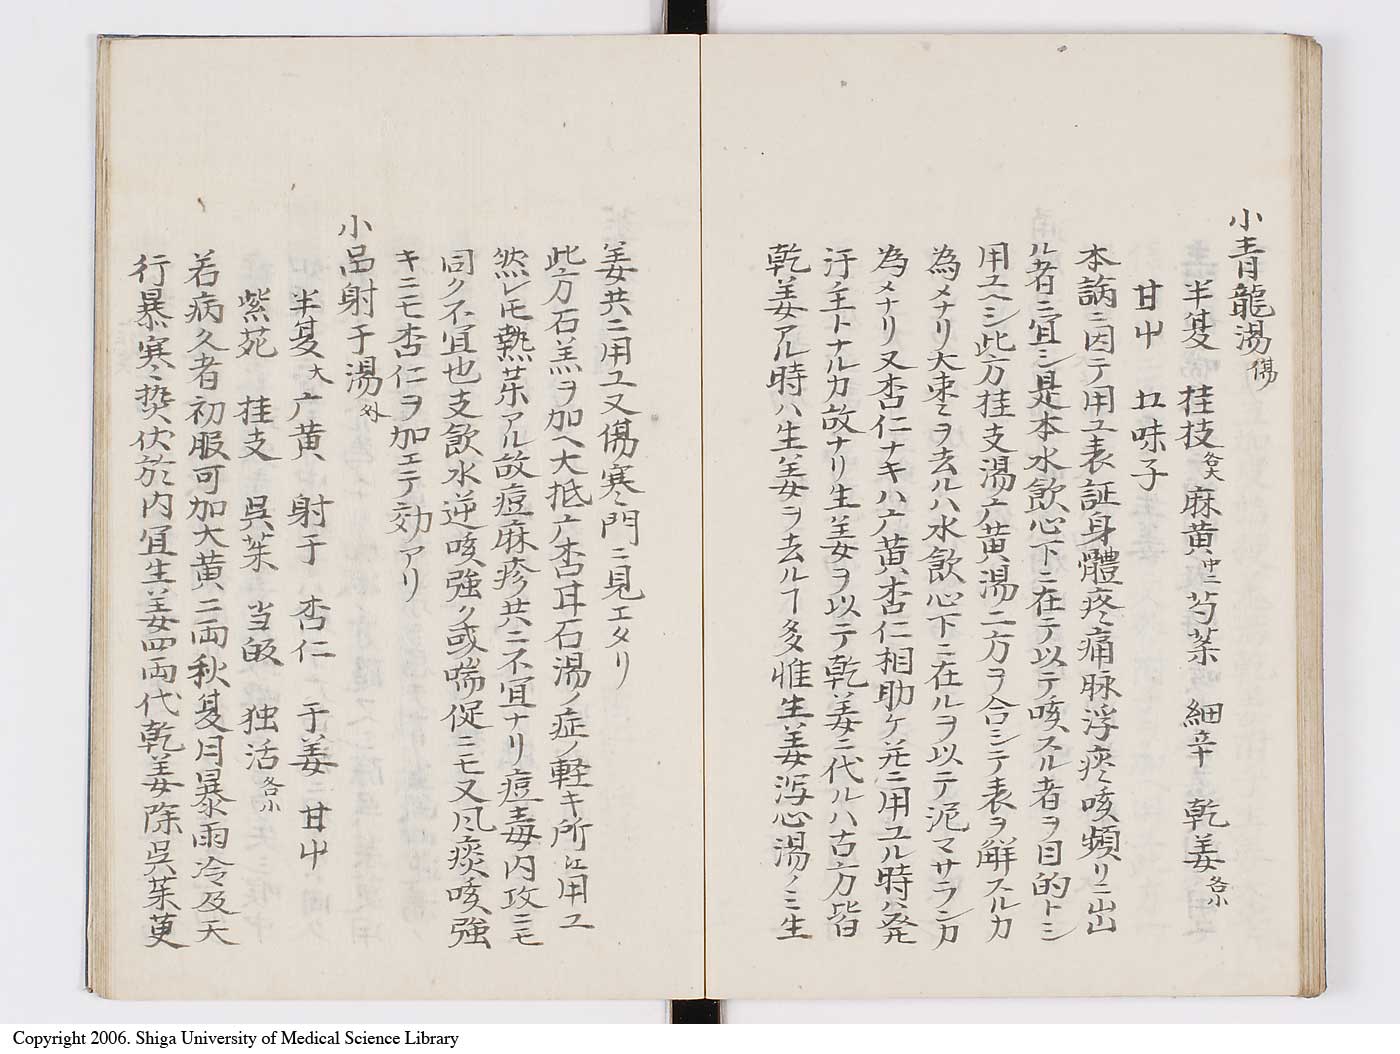 小青龍湯 傷
半夏 桂枝各大 麻黄中二 芍薬 細辛 乾姜各小
甘屮 五味子
本論ニ因テ用ユ表証身體疼痛脉浮痰咳頻リニ出
ル者ニ宜シ是本水飲心下ニ在テ以テ咳スル者ヲ目的トシ
用ユヘシ此方桂支湯广黄湯二方ヲ合シテ表ヲ解スルカ
為メナリ大棗ヲ去ルハ水飲心下ニ在ルヲ以テ泥マサランカ
為メナリ又杏仁ナキハ广黄杏仁相助ケ并ニ用ユル時ハ発
汗ノ主トナルカ故ナリ生姜ヲ以テ乾姜ニ代ルハ古方皆
乾姜アル時ハ生姜ヲ去ルヿ多惟生姜瀉心湯ノミ生
姜共ニ用ユ又傷寒門ニ見エタリ
此方石羔ヲ加ヘ大抵广杏甘石湯ノ症ノ軽キ所江用ユ
然レㇳモ熱茱アル故痘麻疹共ニ不宜ナリ痘毒内攻ニモ
同ク不宜也支飲水逆咳強ク或喘促ニモ又風痰咳強
キニモ杏仁ヲ加エテ効アリ
小品射干湯 外
半夏大 广黄 射干 杏仁 干姜 甘屮
紫苑 桂支 呉茱 当皈 独活各小
若病久者初服可加大黄二両秋夏月暴雨冷及天
行暴寒熱伏於内宜生姜四両代乾姜除呉茱萸
Copyright 2006. Shiga University of Medical Science Library